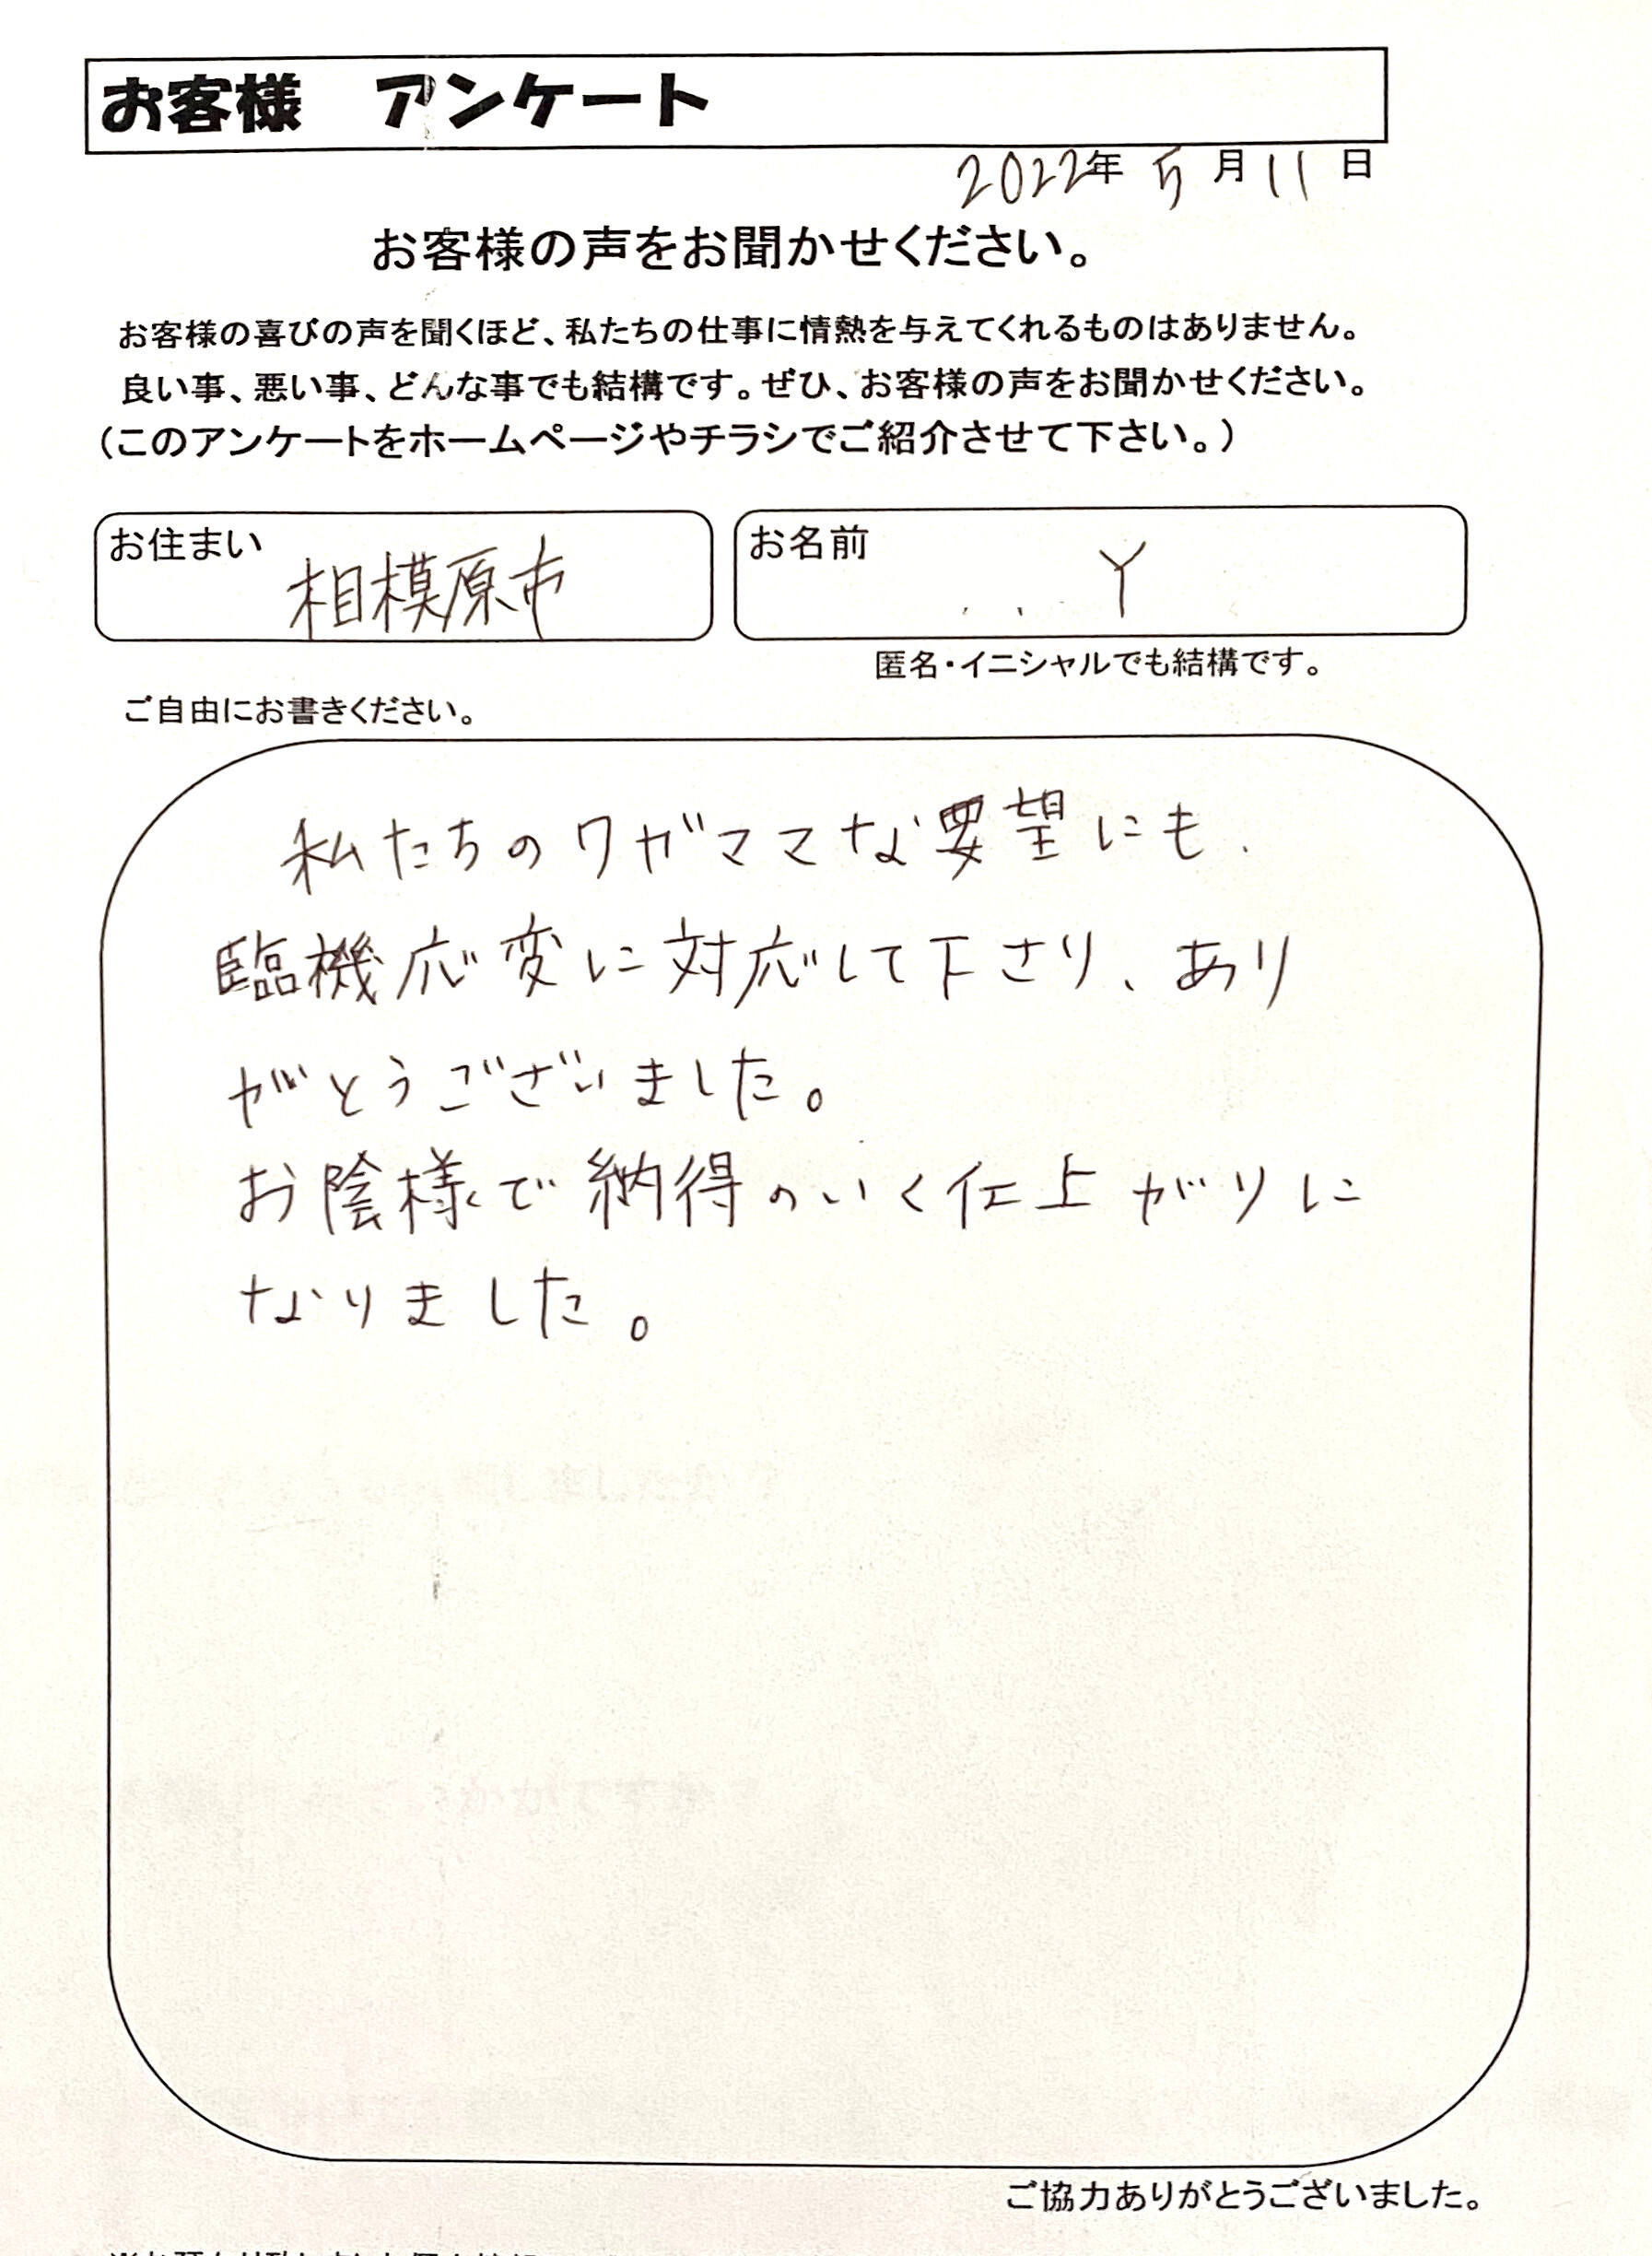 お客様　アンケート
2022年 5月11日
お客様の声をお聞かせください。
お客様の喜びの声を聞くほど、私たちの仕事に情熱を与えてくれるものはありません。
良い事、悪い事、どんな事でも結構です。ぜひ、お客様の声をお聞かせください。
（このアンケートをホームページやチラシでご紹介させて下さい。）
お住まい 相模原市
お名前 Y
匿名・イニシャルでも結構です。
ご自由にお書きください。
私たちのワガママな要望にも、
臨機応変に対応して下さり、あり
がとうございました。
お陰様で納得のいく仕上がりに
なりました。
ご協力ありがとうございました。